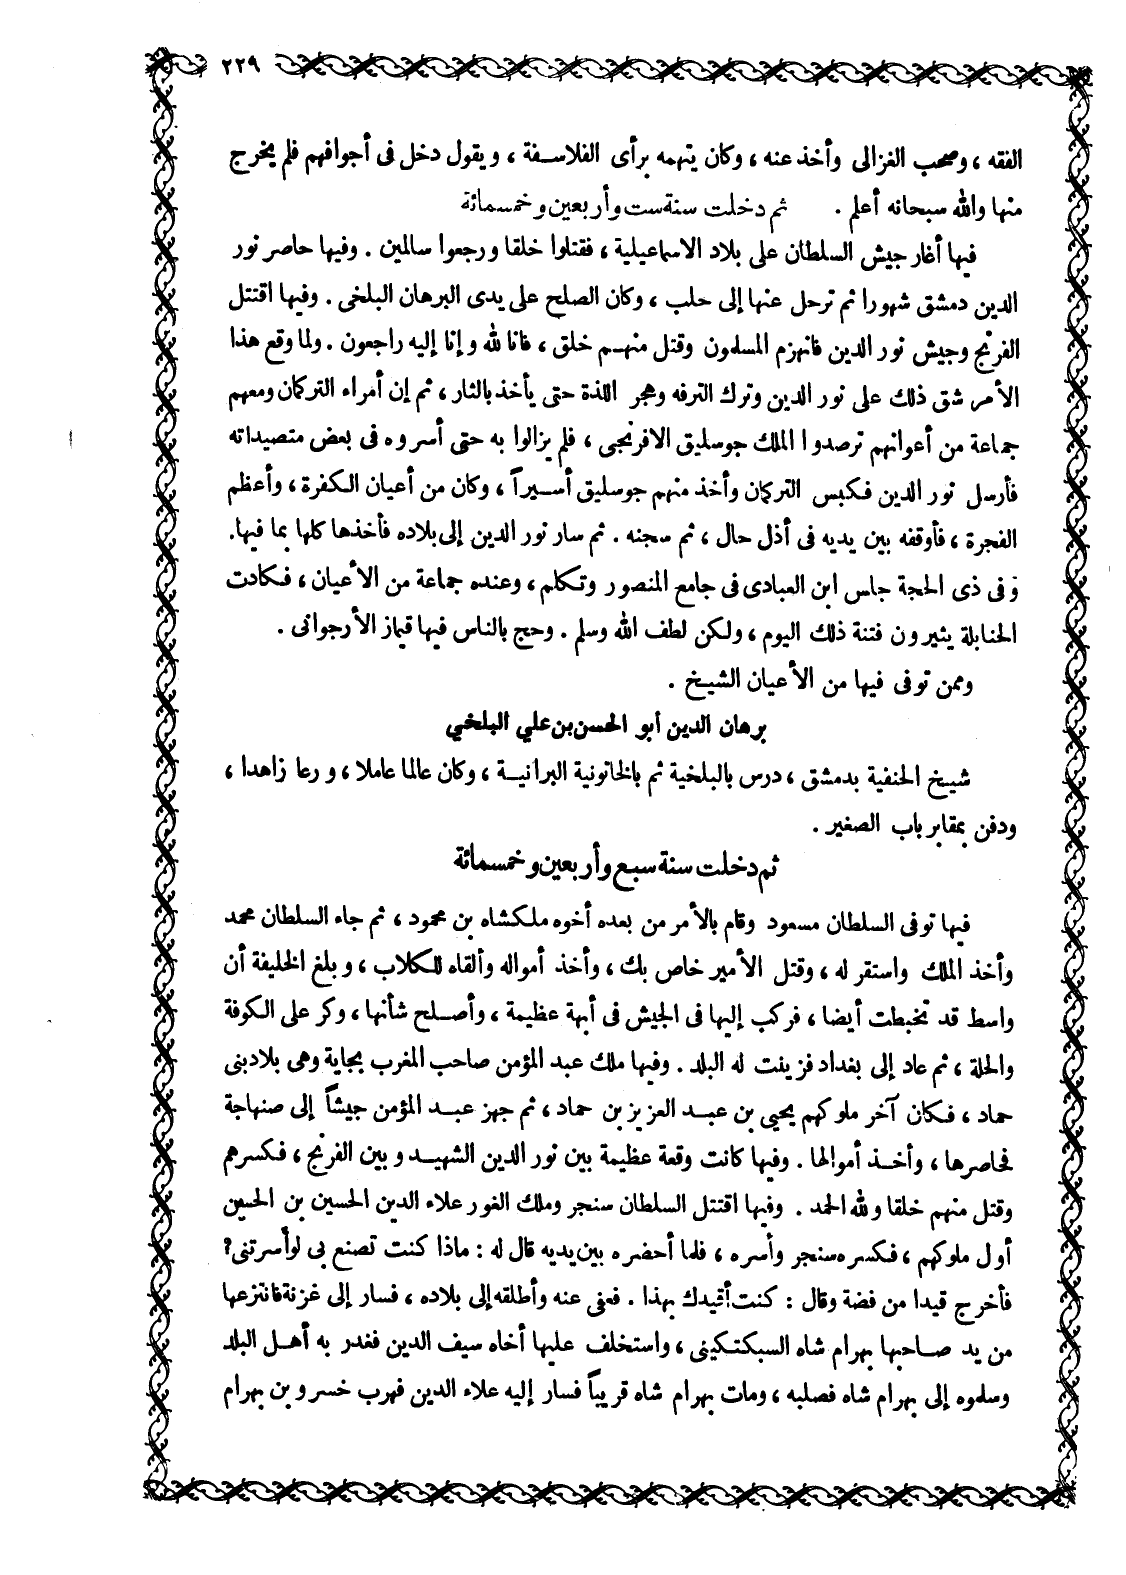 ٢٢٩
الفقه ، وصحب الغزالى وأخذ عنه ، وكان يتهمه برأى الفلاسفة ، ويقول دخل فى أجوافهم فلم يخرج
منها والله سبحانه أعلم . ثم دخلت سنة ست وأربعين وخمسمائة
فيها أغار جيش السلطان على بلاد الاسماعيلية ، فقتلوا خلقا ورجعوا سالمين . وفيها حاصر نور
الدين دمشق شهورا ثم ترحل عنها إلى حلب ، وكان الصلح على يدى البرهان البلخى . وفيها اقتتل
الفرنج وجيش نور الدين فانهزم المسلمون وقتل منهم خلق ، فانا لله وإنا إليه راجعون . ولما وقع هذا
الأمر شق ذلك على نور الدين وترك الترفه وهجر اللذة حتى يأخذ بالثار ، ثم إن أمراء التركمان ومعهم
جماعة من أعوانهم ترصدوا الملك جوسليق الافرنجى ، فلم يزالوا به حتى أسروه فى بعض متصيداته
فأرسل نور الدين فكبس التركمان وأخذ منهم جوسليق أسيراً ، وكان من أعيان الكفرة ، وأعظم
الفجرة ، فأوقفه بين يديه فى أذل حال ، ثم سجنه . ثم سار نور الدين إلى بلاده فأخذها كلها بما فيها.
وفى ذى الحجة جلس ابن العبادى فى جامع المنصور وتكلم ، وعنده جماعة من الأعيان ، فكادت
الحنابلة يثيرون فتنة ذلك اليوم ، ولكن لطف الله وسلم . وحج بالناس فيها قيماز الأرجوانى .
وممن توفى فيها من الأعيان الشيخ .
برهان الدين أبو الحسن بن علي البلخي
شيخ الحنفية بدمشق ، درس بالبلخية ثم بالخاتونية البرانية ، وكان عالما عاملا ، ورعا زاهدا ،
ودفن بمقابر باب الصغير .
ثم دخلت سنة سبع وأربعين وخمسمائة
فيها توفى السلطان مسعود وقام بالأمر من بعده أخوه ملكشاه بن محمود ، ثم جاء السلطان محمد
وأخذ الملك واستقر له ، وقتل الأمير خاص بك ، وأخذ أمواله وألقاه للكلاب ، وبلغ الخليفة أن
واسط قد تخبطت أيضا ، فركب إليها فى الجيش فى أبهة عظيمة ، وأصلح شأنها ، وكر على الكوفة
والحلة ، ثم عاد إلى بغداد فزينت له البلد . وفيها ملك عبد المؤمن صاحب المغرب بجاية وهى بلاد بنى
حماد ، فكان آخر ملوكهم يحيى بن عبد العزيز بن حماد ، ثم جهز عبد المؤمن جيشاً إلى صنهاجة
فحاصرها ، وأخذ أموالها . وفيها كانت وقعة عظيمة بين نور الدين الشهيد وبين الفرنج ، فكسرهم
وقتل منهم خلقا ولله الحمد . وفيها اقتتل السلطان سنجر وملك الغور علاء الدين الحسين بن الحسين
أول ملوكهم ، فكسره سنجر وأسره ، فلما أحضره بين يديه قال له : ماذا كنت تصنع بى لو أسرتنى؟
فأخرج قيدا من فضة وقال : كنت أقيدك بهذا . فعفى عنه وأطلقه إلى بلاده ، فسار إلى غزنة فانتزعها
من يد صاحبها بهرام شاه السبكتكينى ، واستخلف عليها أخاه سيف الدين فغدر به أهل البلد
وسلموه إلى بهرام شاه فصلبه ، ومات بهرام شاه قريباً فسار إليه علاء الدين فهرب خسرو بن بهرام